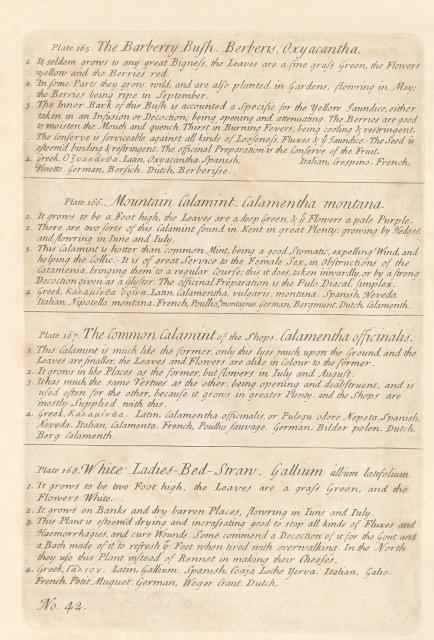 Plate 165. The Barberry Bush. Berberis, Oxyacantha.
1. It seldom grows to any great Bigness, the Leaves are a fine grass Green, the Flowers
yellow and the Berries red.
2. In some Parts they grow wild, and are also planted in Gardens, flowring in May;
the Berries being ripe in September.
3. The Inner Bark of this Bush is accounted a Specific for the Yellow Jaundice, either
taken in an Infusion or Decoction; being opening and attenuating. The Berries are good
to moisten the Mouth and quench Thirst in Burning Fevers, being cooling & restringent.
The Conserve is serviceable against all kinds of Looseness, Fluxes & ẏ Jaundice. The Seed is
esteem'd binding & restringent. The officinal Preparation is the Conserve of the Fruit.
4. Greek, Οξυακανθα. Latin, Oxyacantha. Spanish, Italian, Crespino. French,
Vinette. German, Bersich. Dutch, Berberisse.
Plate 166. Mountain Calamint. Calamentha montana.
1. It grows to be a Foot high, the Leaves are a deep Green, & ẏ Flowers a pale Purple.
2. There are two sorts of this Calamint found in Kent in great Plenty; growing by Hedges,
and flowring in June and July.
3. This Calamint is hotter than common Mint, being a good Stomatic, expelling Wind, and
helping the Collic. It is of great Service to the Female Sex, in Obstructions of the
Catamenia, bringing them to a regular Course; this it does, taken inwardly, or by a strong
Decoction given as a Glyster. The officinal Preparation is the Pulo Diacal. simplex.
4. Greek, Καλαμινθα ορινη. Latin, Calamentha, vulgaris, montana. Spanish, Neveda.
Italian, Nipotella montana. French, Pouliot, montagnes. German, Bergmunt. Dutch, Calamenth.
Plate 167. The Common Calamint of the Shops. Calamentha officinalis.
1. This Calamint is much like the former, only this lyes much upon the Ground, and the
Leaves are smaller; the Leaves and Flowers are alike in Colour to the former.
2. It grows in like Places as the former, but flowers in July and August.
3. It has much the same Vertues as the other, being opening and deobstruent, and is
used often for the other, because it grows in greater Plenty, and the Shops are
mostly Supplied with this.
4. Greek, Καλαμινθα. Latin, Calamentha officinalis, or Pulegii odore Nepeta. Spanish,
Neveda. Italian, Calamenta. French, Poulho sauvage. German, Bilder polen. Dutch,
Berg Calamenth.
Plate 168. White Ladies-Bed-Straw. Gallium album latifolium.
1. It grows to be two Foot high, the Leaves are a grass Green, and the
Flowers White.
2. It grows on Banks and dry barren Places, flowring in June and July.
3. This Plant is esteem'd drying and incrassating good to stop all kinds of Fluxes and
Haemorrhagies, and cure Wounds. Some commend a Decoction of it for the Gout and
a Bath made of it to refresh ẏ Feet when tired with overwalking. In the North
they use this Plant instead of Rennet in making their Cheeses.
4. Greek, Γαλιον. Latin, Gallium. Spanish, Coaja Leche Yerva. Italian, Galio.
French, Petit Muguet. German, Weger Craut. Dutch,
No. 42.